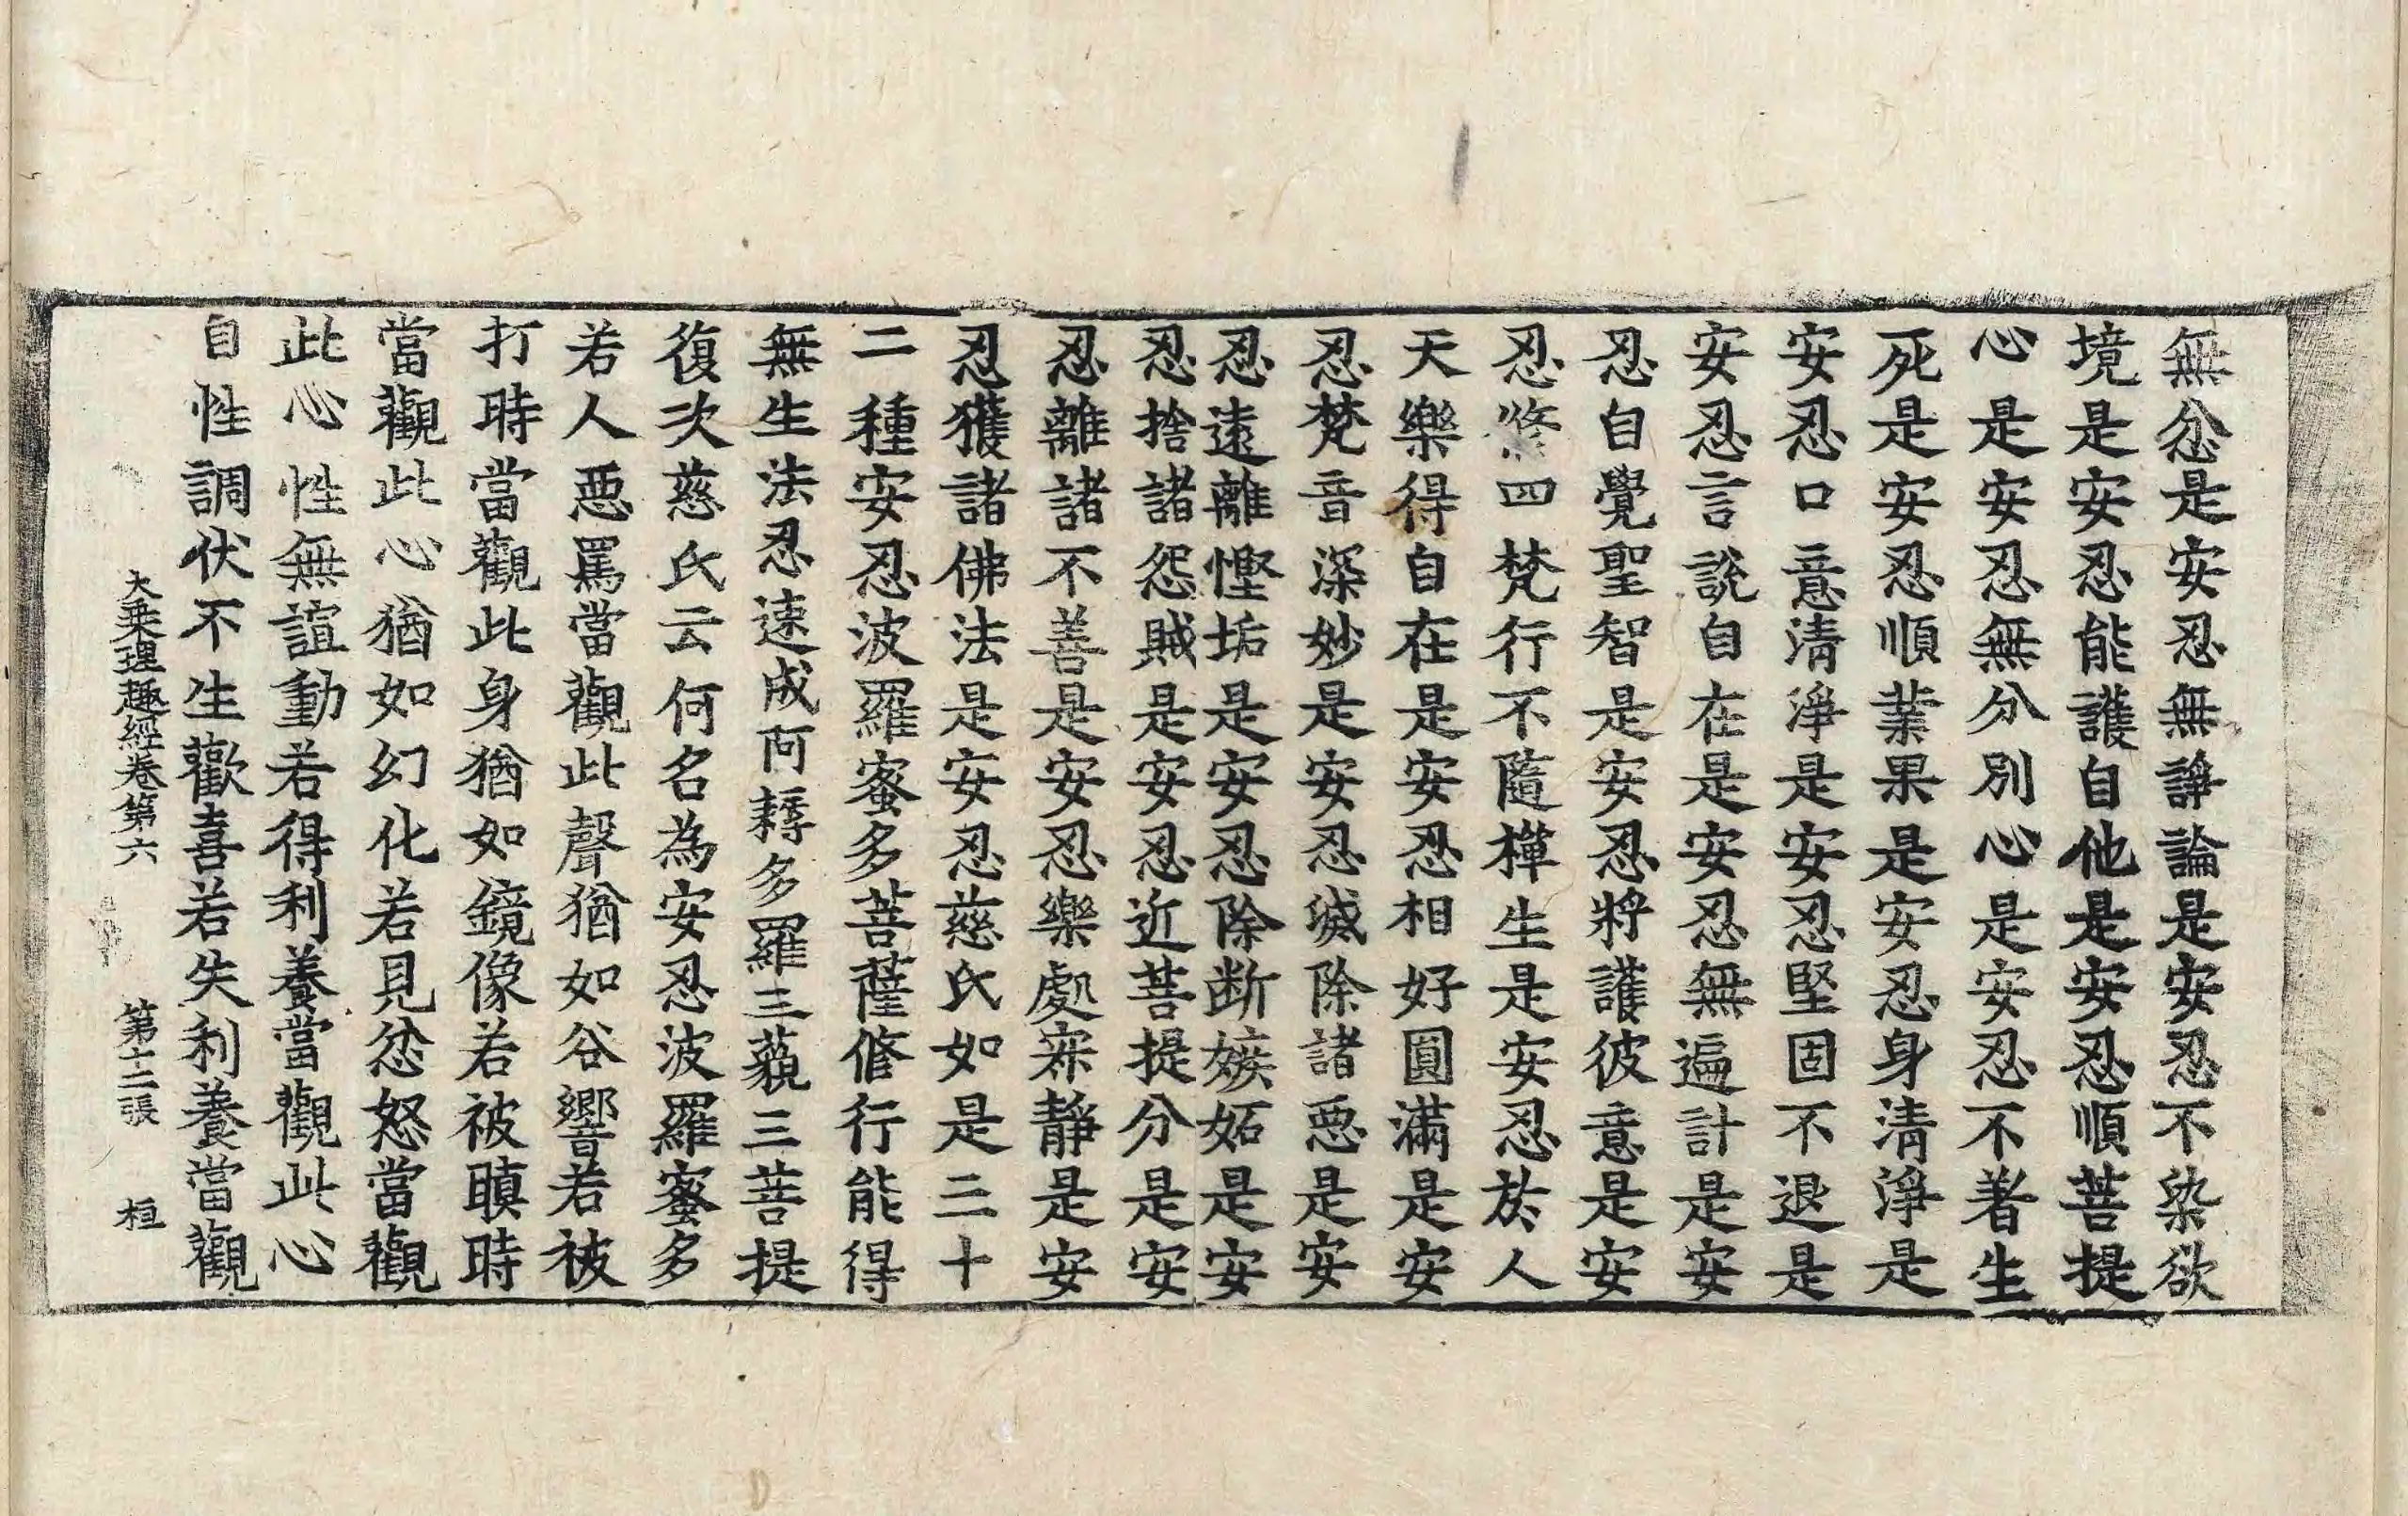 無忿是安忍無諍論是安忍不染欲
境是安忍能護自他是安忍順菩提
心是安忍無分別心是安忍不著生
死是安忍順業果是安忍身清淨是
安忍口意清淨是安忍堅固不退是
安忍言說自在是安忍無遍計是安
忍自覺聖智是安忍將護彼意是安
忍修四梵行不隨禪生是安忍於人
天樂得自在是安忍相好圓滿是安
忍梵音深妙是安忍滅除諸惡是安
忍遠離慳垢是安忍除断嫉妬是安
忍捨諸怨賊是安忍近菩提分是安
忍離諸不善是安忍樂處寂靜是安
忍獲諸佛法是安忍慈氏如是三十
二種安忍波羅蜜多菩薩修行能得
無生法忍速成阿耨多羅三藐三菩提
復次慈氏云何名為安忍波羅蜜多
若人惡罵當觀此聲猶如谷響若被
打時當觀此身猶如鏡像若被瞋時
當觀此心猶如幻化若見忿怒當觀
此心性無諠動若得利養當觀此心
自性調伏不生歡喜若失利養當觀
大乘理趣經卷第六 第十二張 桓